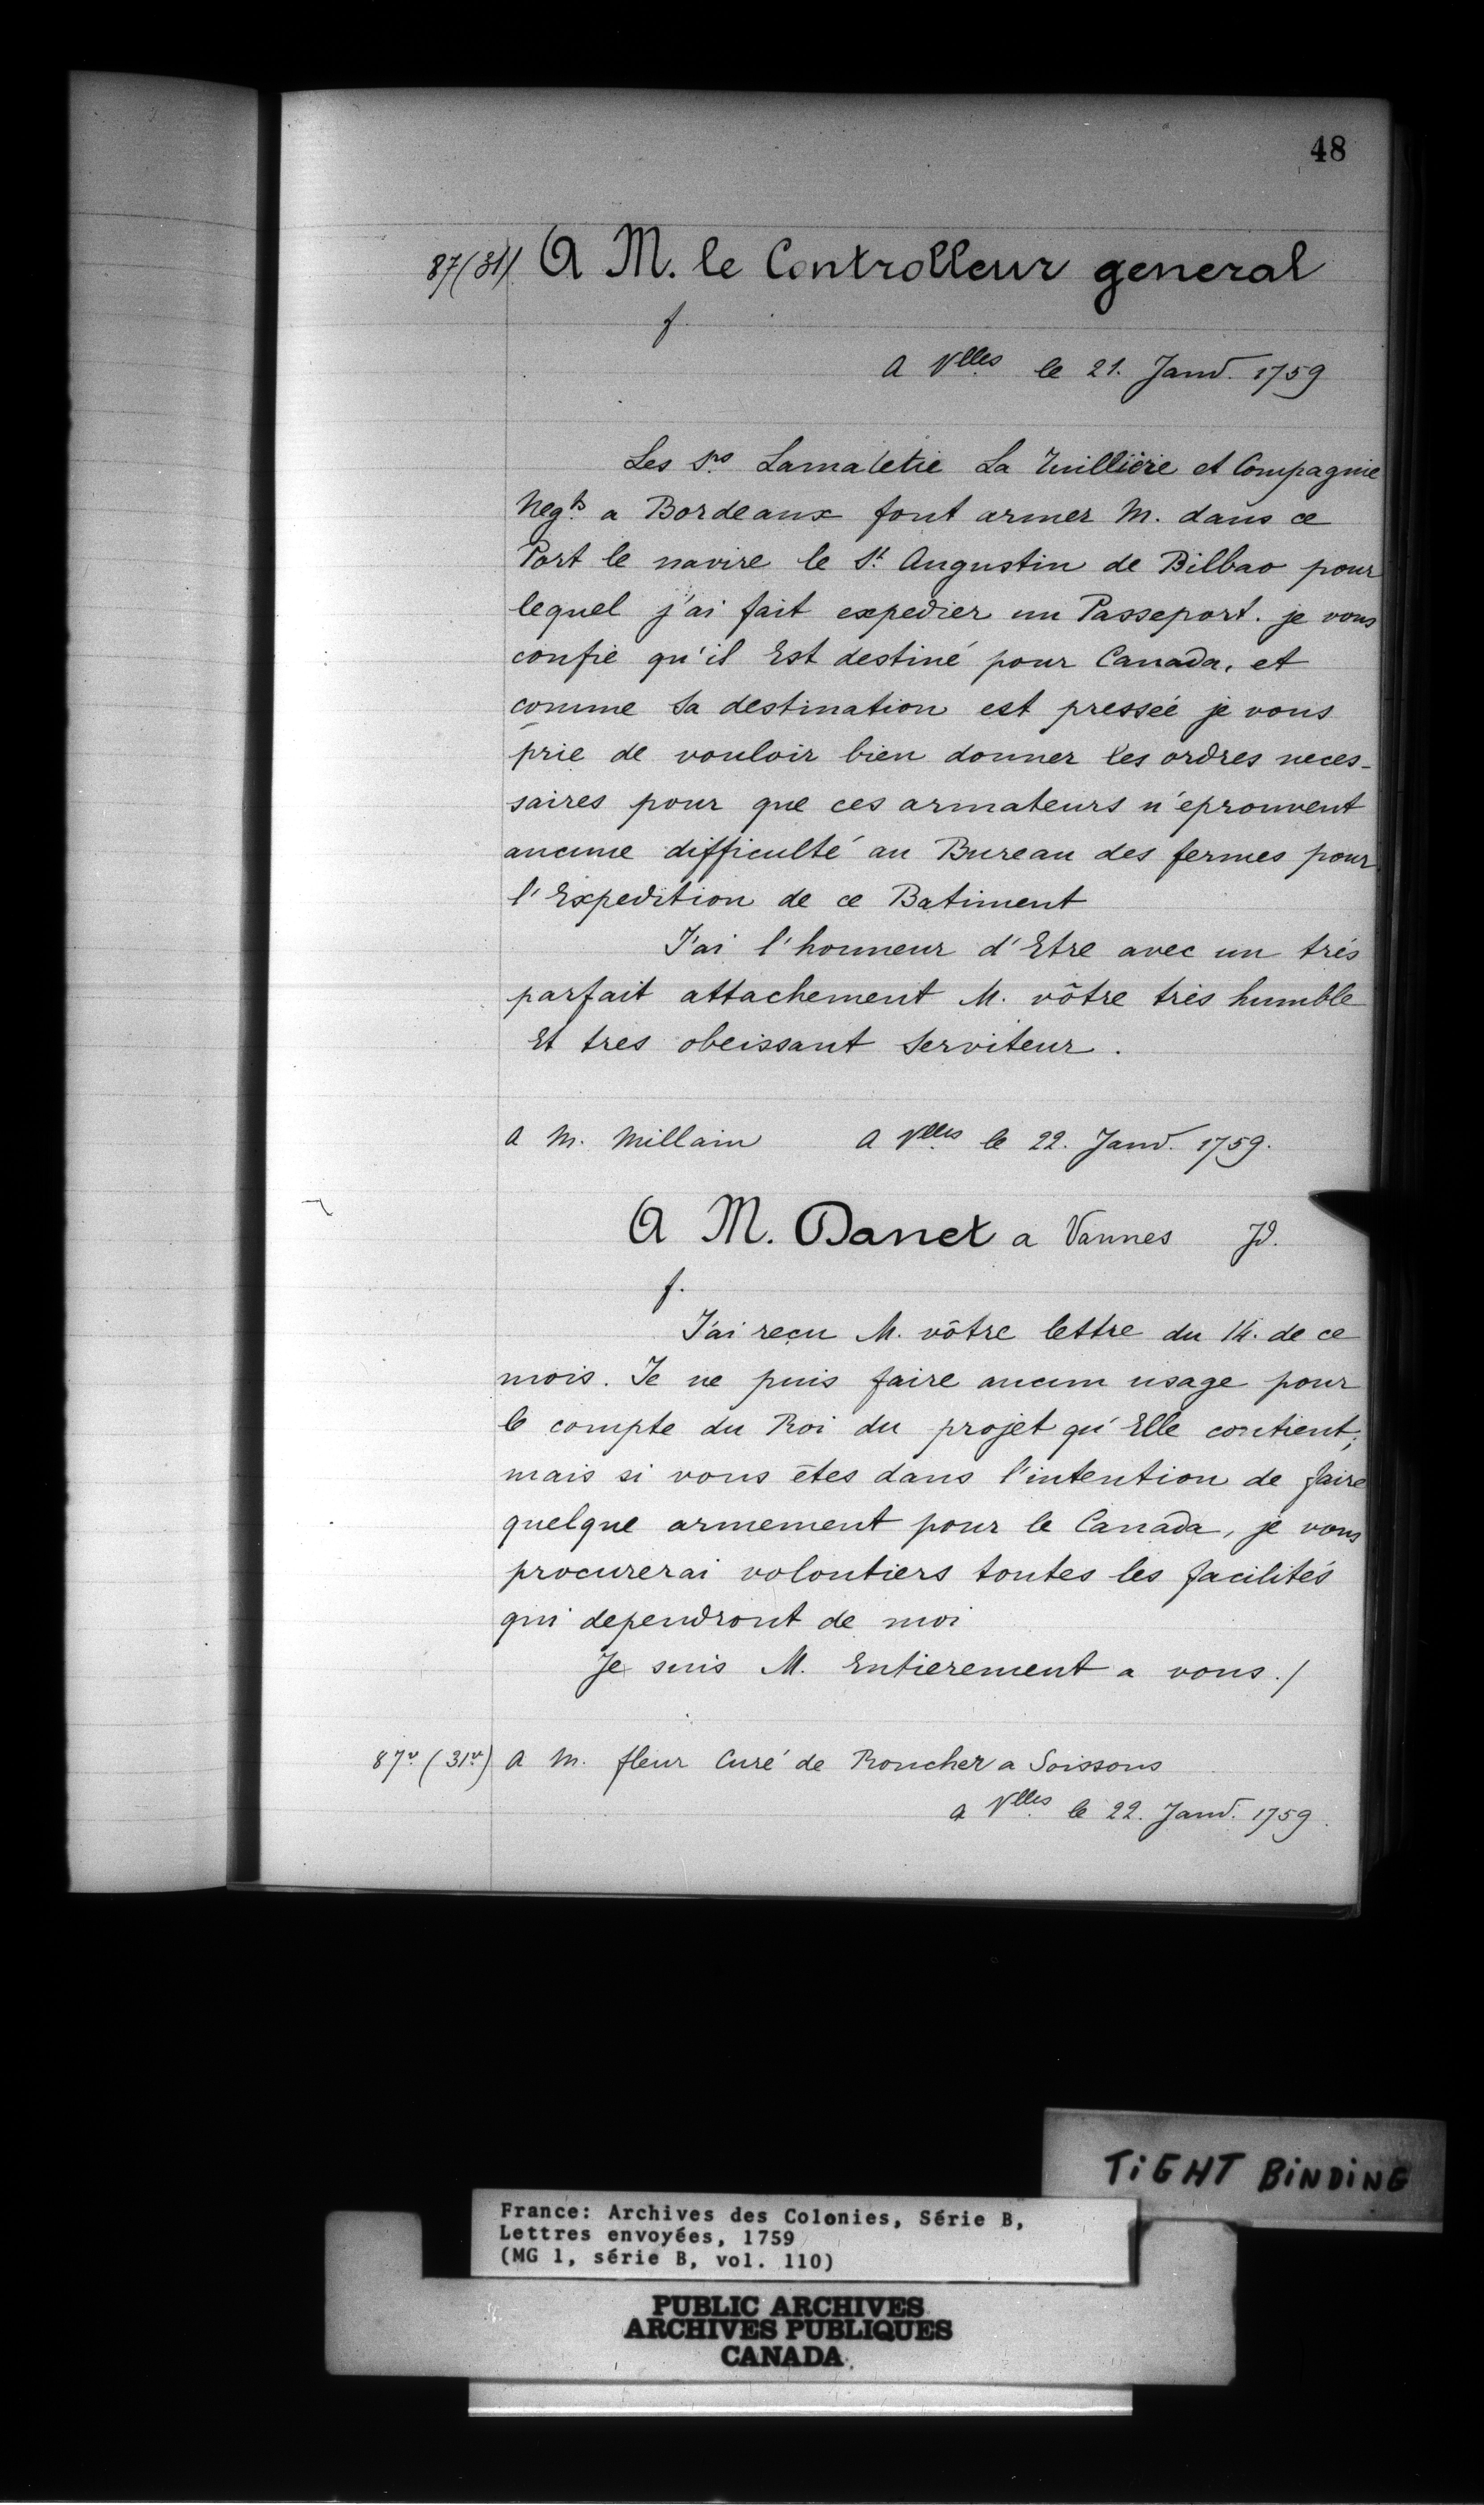 48
87 (31) A M. le Controlleur general
f.
A Vlles le 21. Janv. 1759
Les Srs Lamaletie La Tuillière et Compagnie
Negts a Bordeaux font armer M. dans ce
Port le navire le St. Augustin de Bilbao pour
lequel j'ai fait expedier un Passeport. je vous
confie qu'il Est destiné pour Canada, et
comme sa destination est pressée je vous
prie de vouloir bien donner les ordres neces-
saires pour que ces armateurs n'eprouvent
aucune difficulté au Bureau des fermes pour
l'Expedition de ce Batiment
J'ai l'honneur d'Etre avec un trés
parfait attachement M. vôtre trés humble
Et tres obeissant Serviteur.
A M. Millain A Vlles le 22. Janv. 1759.
A M. Danet a Vannes Jd.
f.
J'ai reçu M. vôtre lettre du 14. de ce
mois. Je ne puis faire aucun usage pour
le compte du Roi du projet qu'Elle contient;
mais si vous êtes dans l'intention de faire
quelque armement pour le Canada, je vous
procurerai volontiers toutes les facilités
qui dependront de moi
Je suis M. Entierement a vous./
87v (31v) A M. fleur Curé de Roucher a Soissons
a Vlles le 22. Janv. 1759.
TIGHT BINDING
France: Archives des Colonies, Série B,
Lettres envoyées, 1759
(MG 1, série B, vol. 110)
PUBLIC ARCHIVES
ARCHIVES PUBLIQUES
CANADA